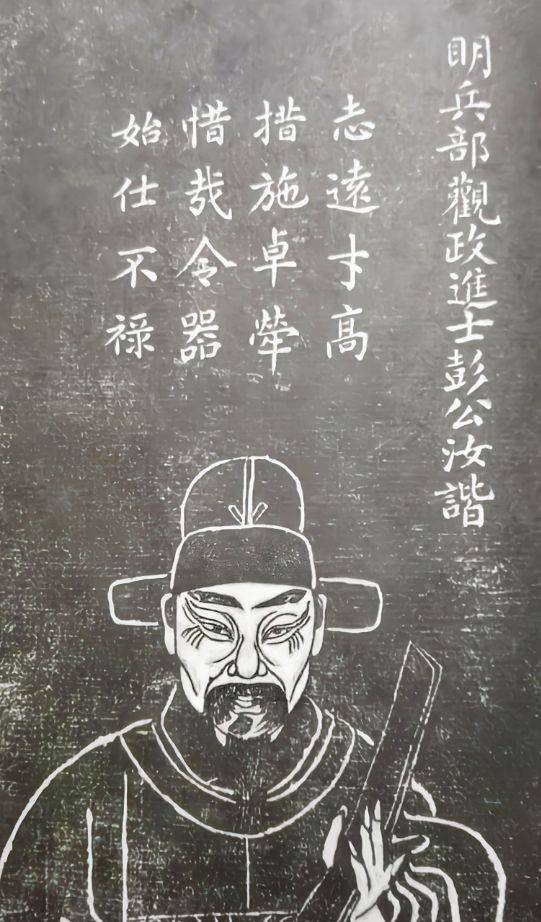 明兵部觀政進士彭公汝諧
志遠才高
措施卓犖
惜哉令器
始仕不祿